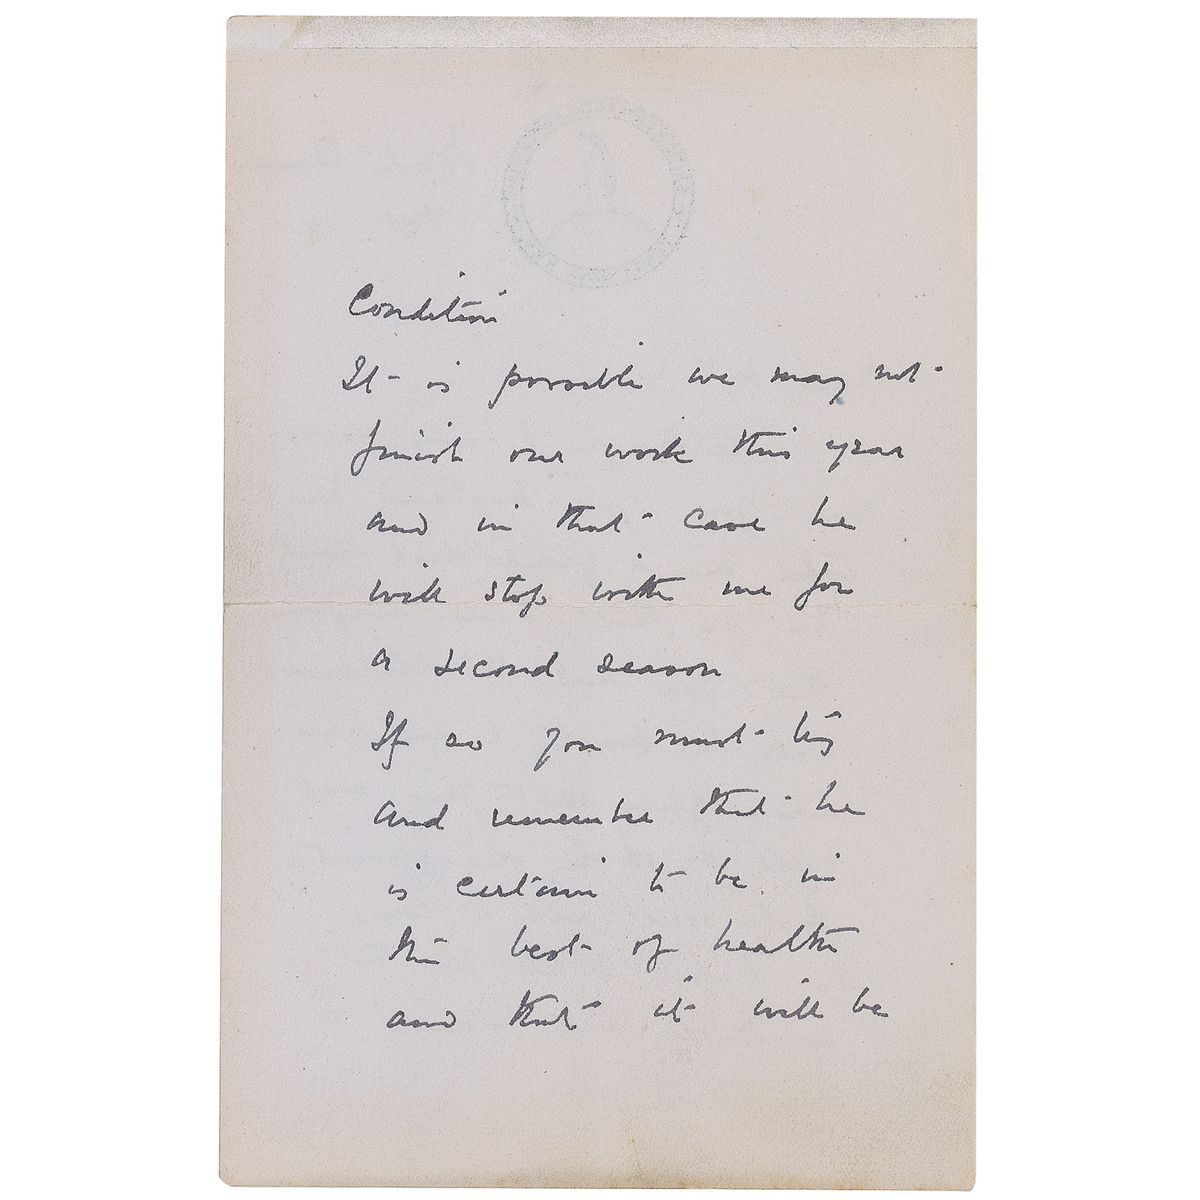 Condition
It is possible we may not
finish our work this year
and in that case he
will stop with me for
a second season
If so you must try
and remember that he
is certain to be in
the best of health
and that it will be